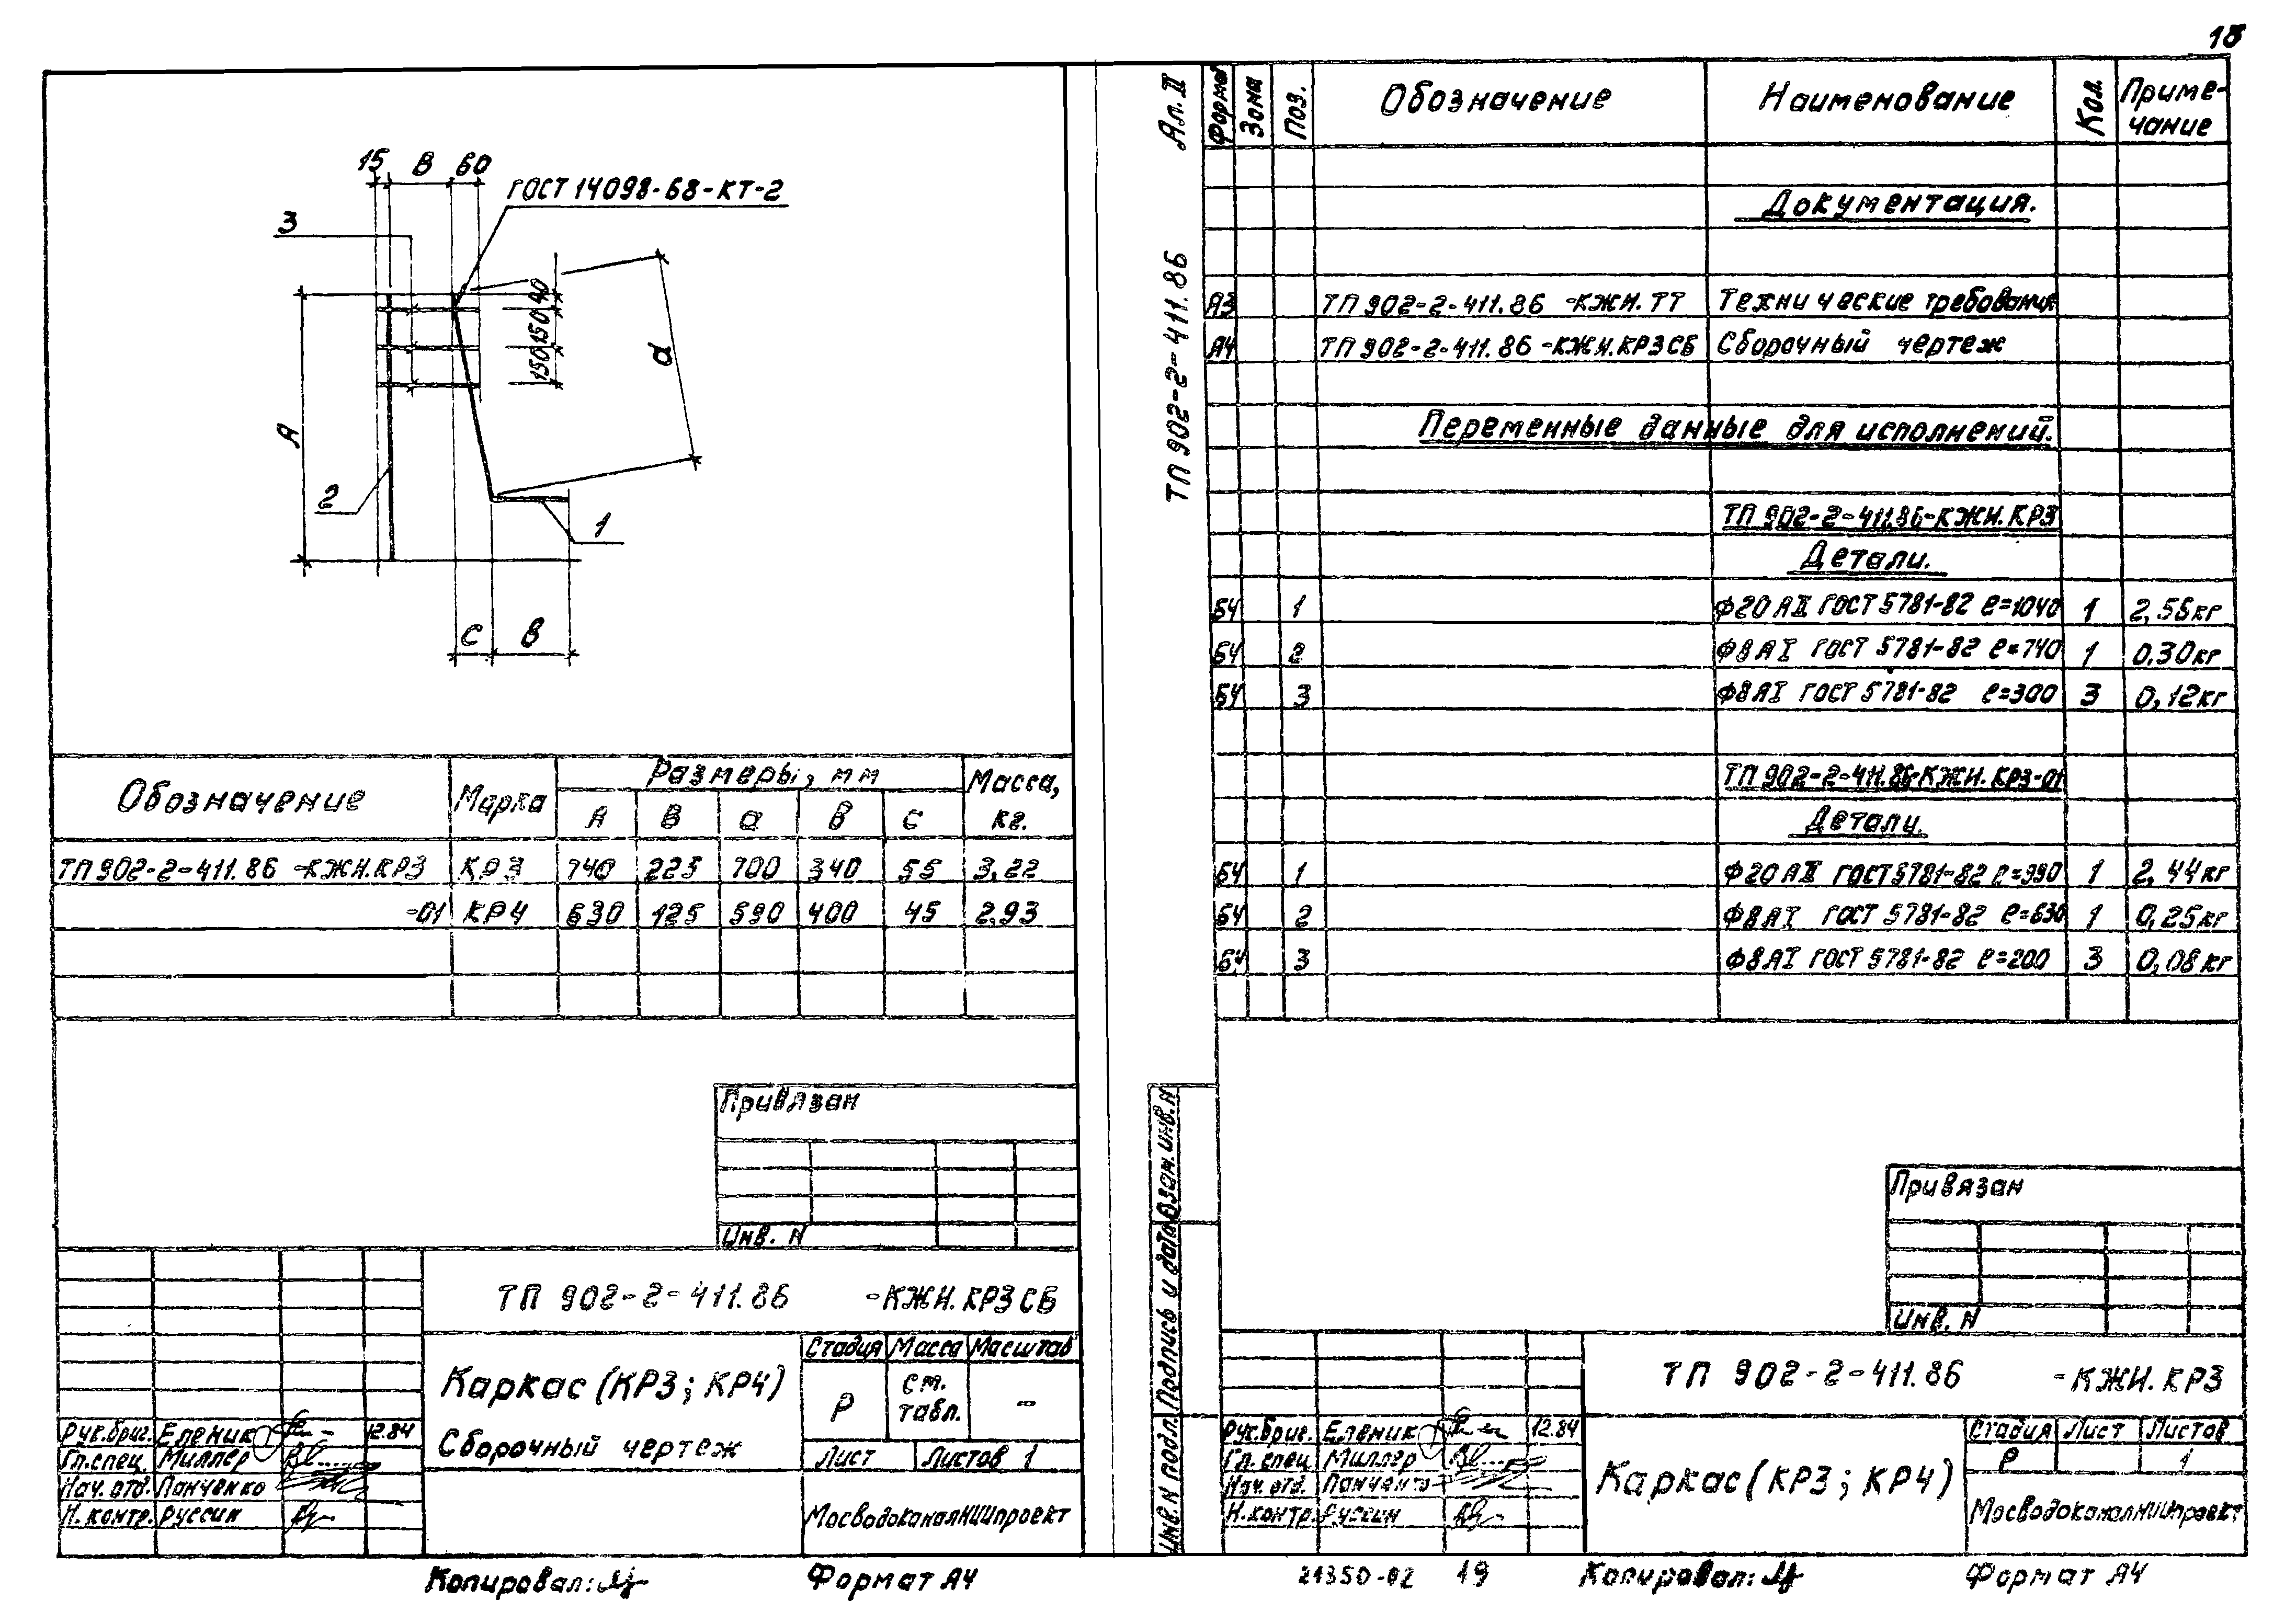 18
15 В 60
ГОСТ 14098-68-КТ-2
3
40
150
150
а
А
2
1
с в
Обозначение Марка Размеры, мм Масса, кг.
А В а в с
ТП902-2-411.86 -КЖИ.КР3 КР3 740 225 700 340 55 3,22
-01 КР4 630 125 590 400 45 2,93
Привязан
Инв. N
ТП 902-2-411.86 -КЖИ.КР3СБ
Каркас (КР3; КР4)
Сборочный чертеж
Стадия Масса Масштаб
Р см. табл. -
Лист Листов 1
МосводоканалНИИпроект
Рук.бриг. Еленик 12.84
Гл.спец. Миллер
Нач. отд. Панченко
Н. контр. Руссин
Копировал: Формат А4
Ал. II
ТП 902-2-411.86
Взам. инв. N
Подпись и дата
Инв. N подл.
Формат Зона Поз. Обозначение Наименование Кол. Приме-
чание
Документация.
А3 ТП902-2-411.86 -КЖИ.ТТ Технические требования
А4 ТП902-2-411.86 -КЖИ.КР3СБ Сборочный чертеж
Переменные данные для исполнений.
ТП 902-2-411.86-КЖИ.КР3
Детали.
БЧ 1 Ф20 АII ГОСТ 5781-82 ℓ=1040 1 2,56кг
БЧ 2 Ф8 АI ГОСТ 5781-82 ℓ=740 1 0,30кг
БЧ 3 Ф8АI ГОСТ 5781-82 ℓ=300 3 0,12кг
ТП902-2-411.86-КЖИ.КР3-01
Детали.
БЧ 1 Ф20 АII ГОСТ5781-82 ℓ=990 1 2,44кг
БЧ 2 Ф8АI ГОСТ 5781-82 ℓ=630 1 0,25кг
БЧ 3 Ф8АI ГОСТ 5781-82 ℓ=200 3 0,08кг
Привязан
Инв. N
ТП 902-2-411.86 -КЖИ.КР3
Рук.бриг. Еленик 12.84
Гл. спец Миллер
Нач. отд. Панченко
Н.контр. Руссин
Каркас (КР3; КР4)
Стадия Лист Листов
Р 1
МосводоканалНИИпроект
21350-02 19 Копировал: Формат А4